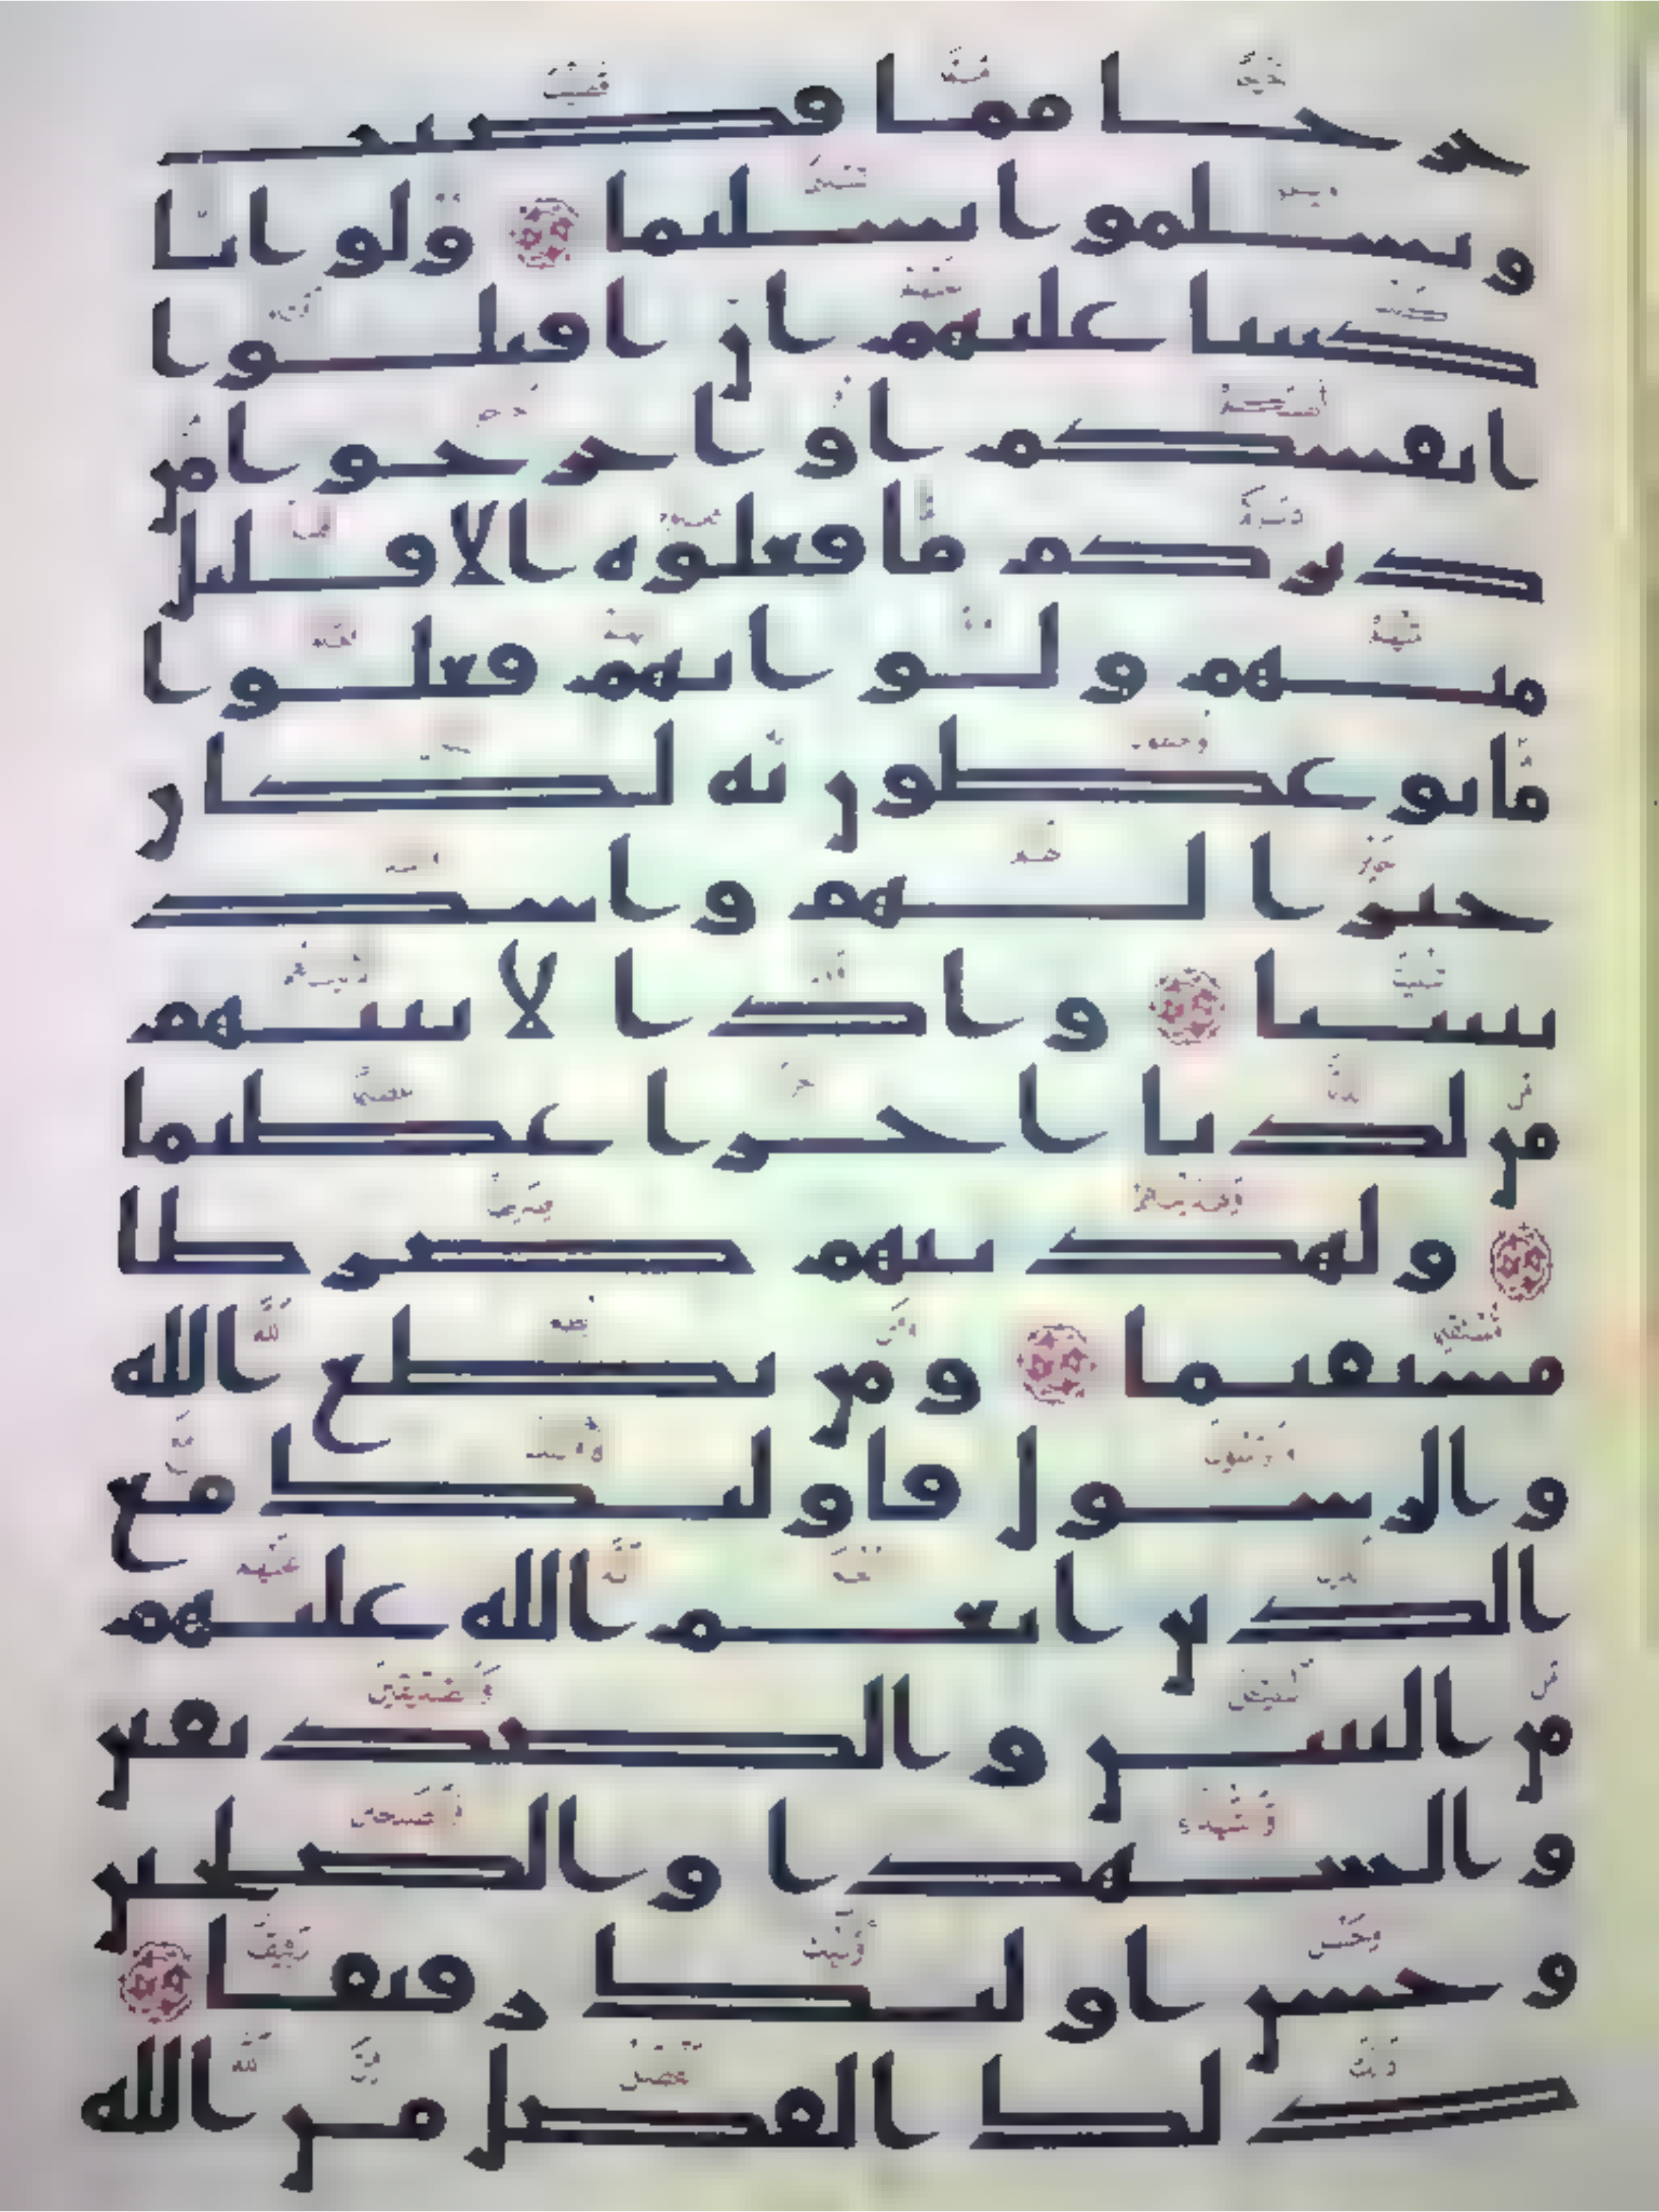 حرجا مما قضيت
ويسلموا تسليما ولو انا
كتبنا عليهم ان اقتلوا
انفسكم او اخرجوا من
ديركم ما فعلوه الا قليل
منهم ولو انهم فعلوا
ما يوعظون به لكان
خيرا لهم واشد
تثبيتا واذا لاتينهم
من لدنا اجرا عظيما
ولهدينهم صرطا
مستقيما ومن يطع الله
والرسول فاولئك مع
الذين انعم الله عليهم
من النبين والصديقين
والشهدا والصلحين
وحسن اولئك رفيقا
ذلك الفضل من الله